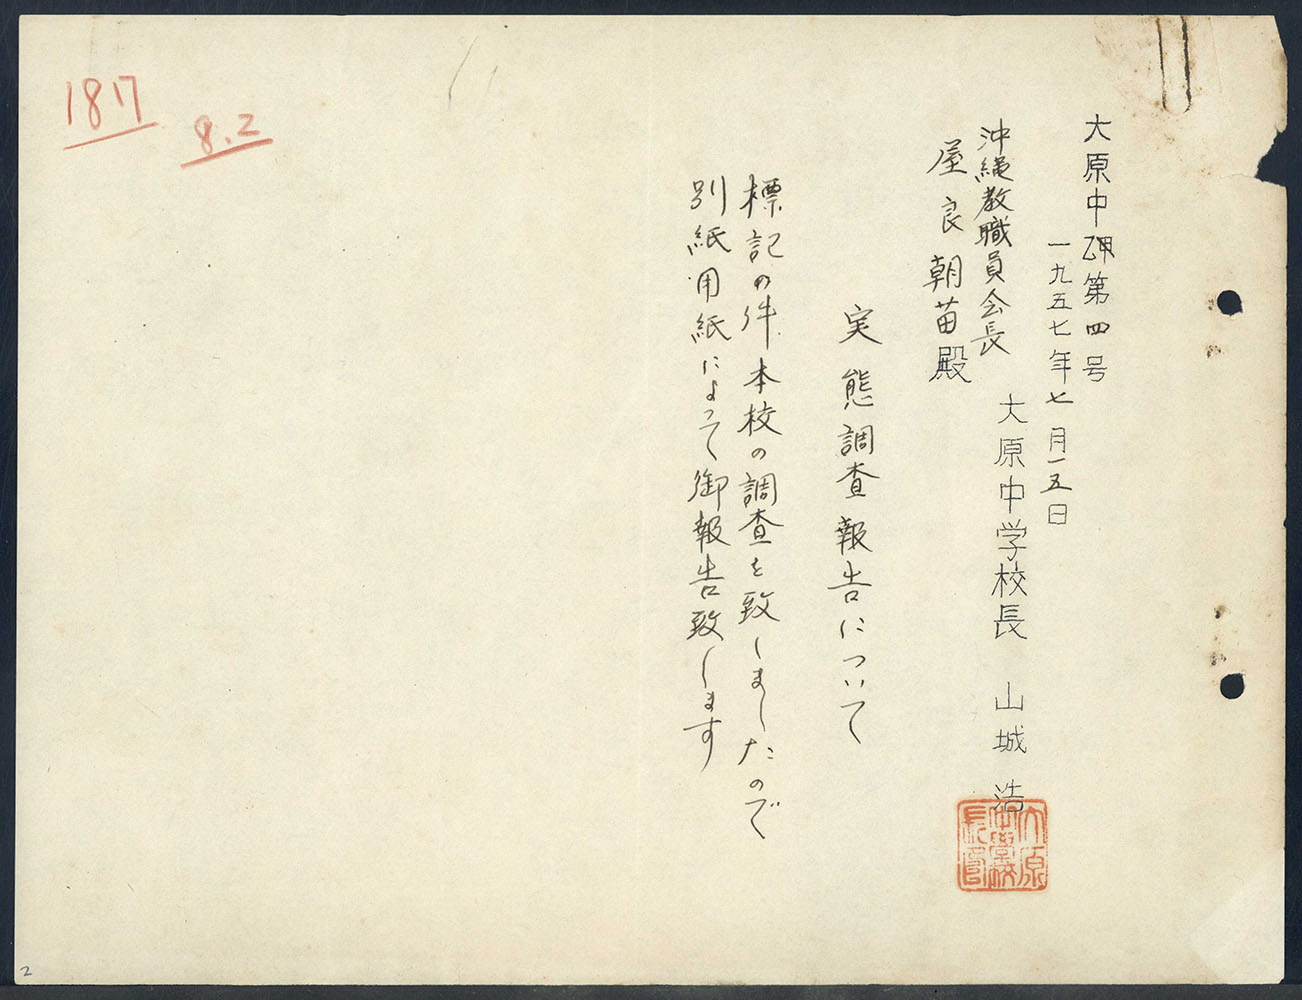 大原中甲第四号
一九五七年七月一五日
大原中学校長 山城 浩
沖縄教職員会長
屋良朝苗殿
実態調査報告について
標記の件本校の調査を致しましたので
別紙用紙によって御報告致します
1817
8.2
大原
中学校
長印
2